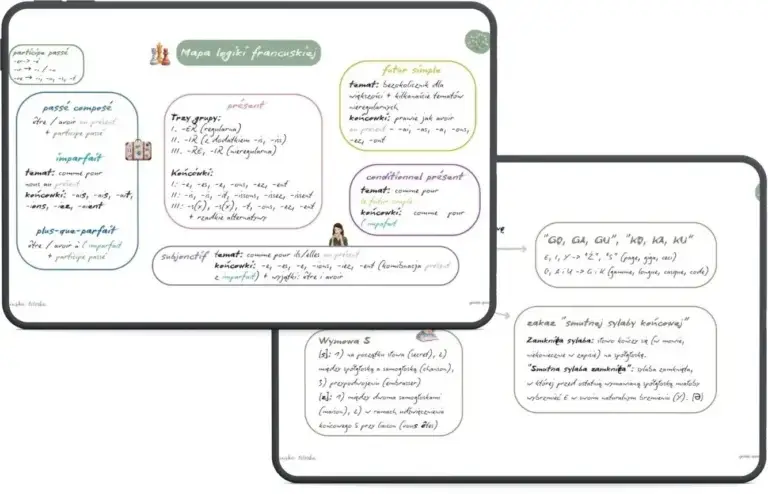 Mapa logiki francuskiej
participe passé
-er -> é
passé composé
être / avoir au présent
+ participe passé
imparfait
temat: comme pour
nous au présent
końcówki: -ais, -ais, -ait,
-ions, -iez, -aient
plus-que-parfait
être / avoir à l'imparfait
+ participe passé
présent
Trzy grupy:
I. -ER (regularna)
II. -IR (z dodatkiem -is, -iss)
III. -RE, -IR (nieregularna)
Końcówki:
I: -e, -es, -e, -ons, -ez, -ent
II: -is, -is, -it, -issons, -issez, -issent
III: -s(x), -s(x), -t, -ons, -ez, -ent
+ rzadkie alternatywy
futur simple
temat: bezokolicznik dla
większości + kilkanaście tematów
nieregularnych
końcówki: prawie jak avoir
au présent - -ai, -as, -a, -ons,
-ez, -ont
conditionnel présent
temat: comme pour
le futur simple
końcówki: comme pour
l'imparfait
subjonctif temat: comme pour ils/elles au présent
końcówki: -e, -es, -e, -ions, -iez, -ent (kombinacja présent
z imparfait) + wyjątki: être i avoir
"GO, GA, GU", "KO, KA, KU"
E, I, Y -> "Ż", "S" (page, giga, ceci)
O, A i U -> G i K (gamme, longue, casque, code)
Wymowa S
[s]: 1) na początku słowa (secret), 2)
między spółgłoską a samogłoską (chanson),
3) przy podwojeniu (embrasser)
[z]: 1) między dwoma samogłoskami
(maison), 2) w ramach udźwięcznienia
końcowego S przy liaison (vous êtes)
zakaz "smutnej sylaby końcowej"
Zamknięta sylaba: słowo kończy się (w mowie,
niekoniecznie w zapisie) na spółgłoskę.
"Smutna sylaba zamknięta": sylaba zamknięta,
w której przed ostatnią wymawianą spółgłoską miałoby
wybrzmieć E w swoim naturalnym brzmieniu (Y). (Ə)